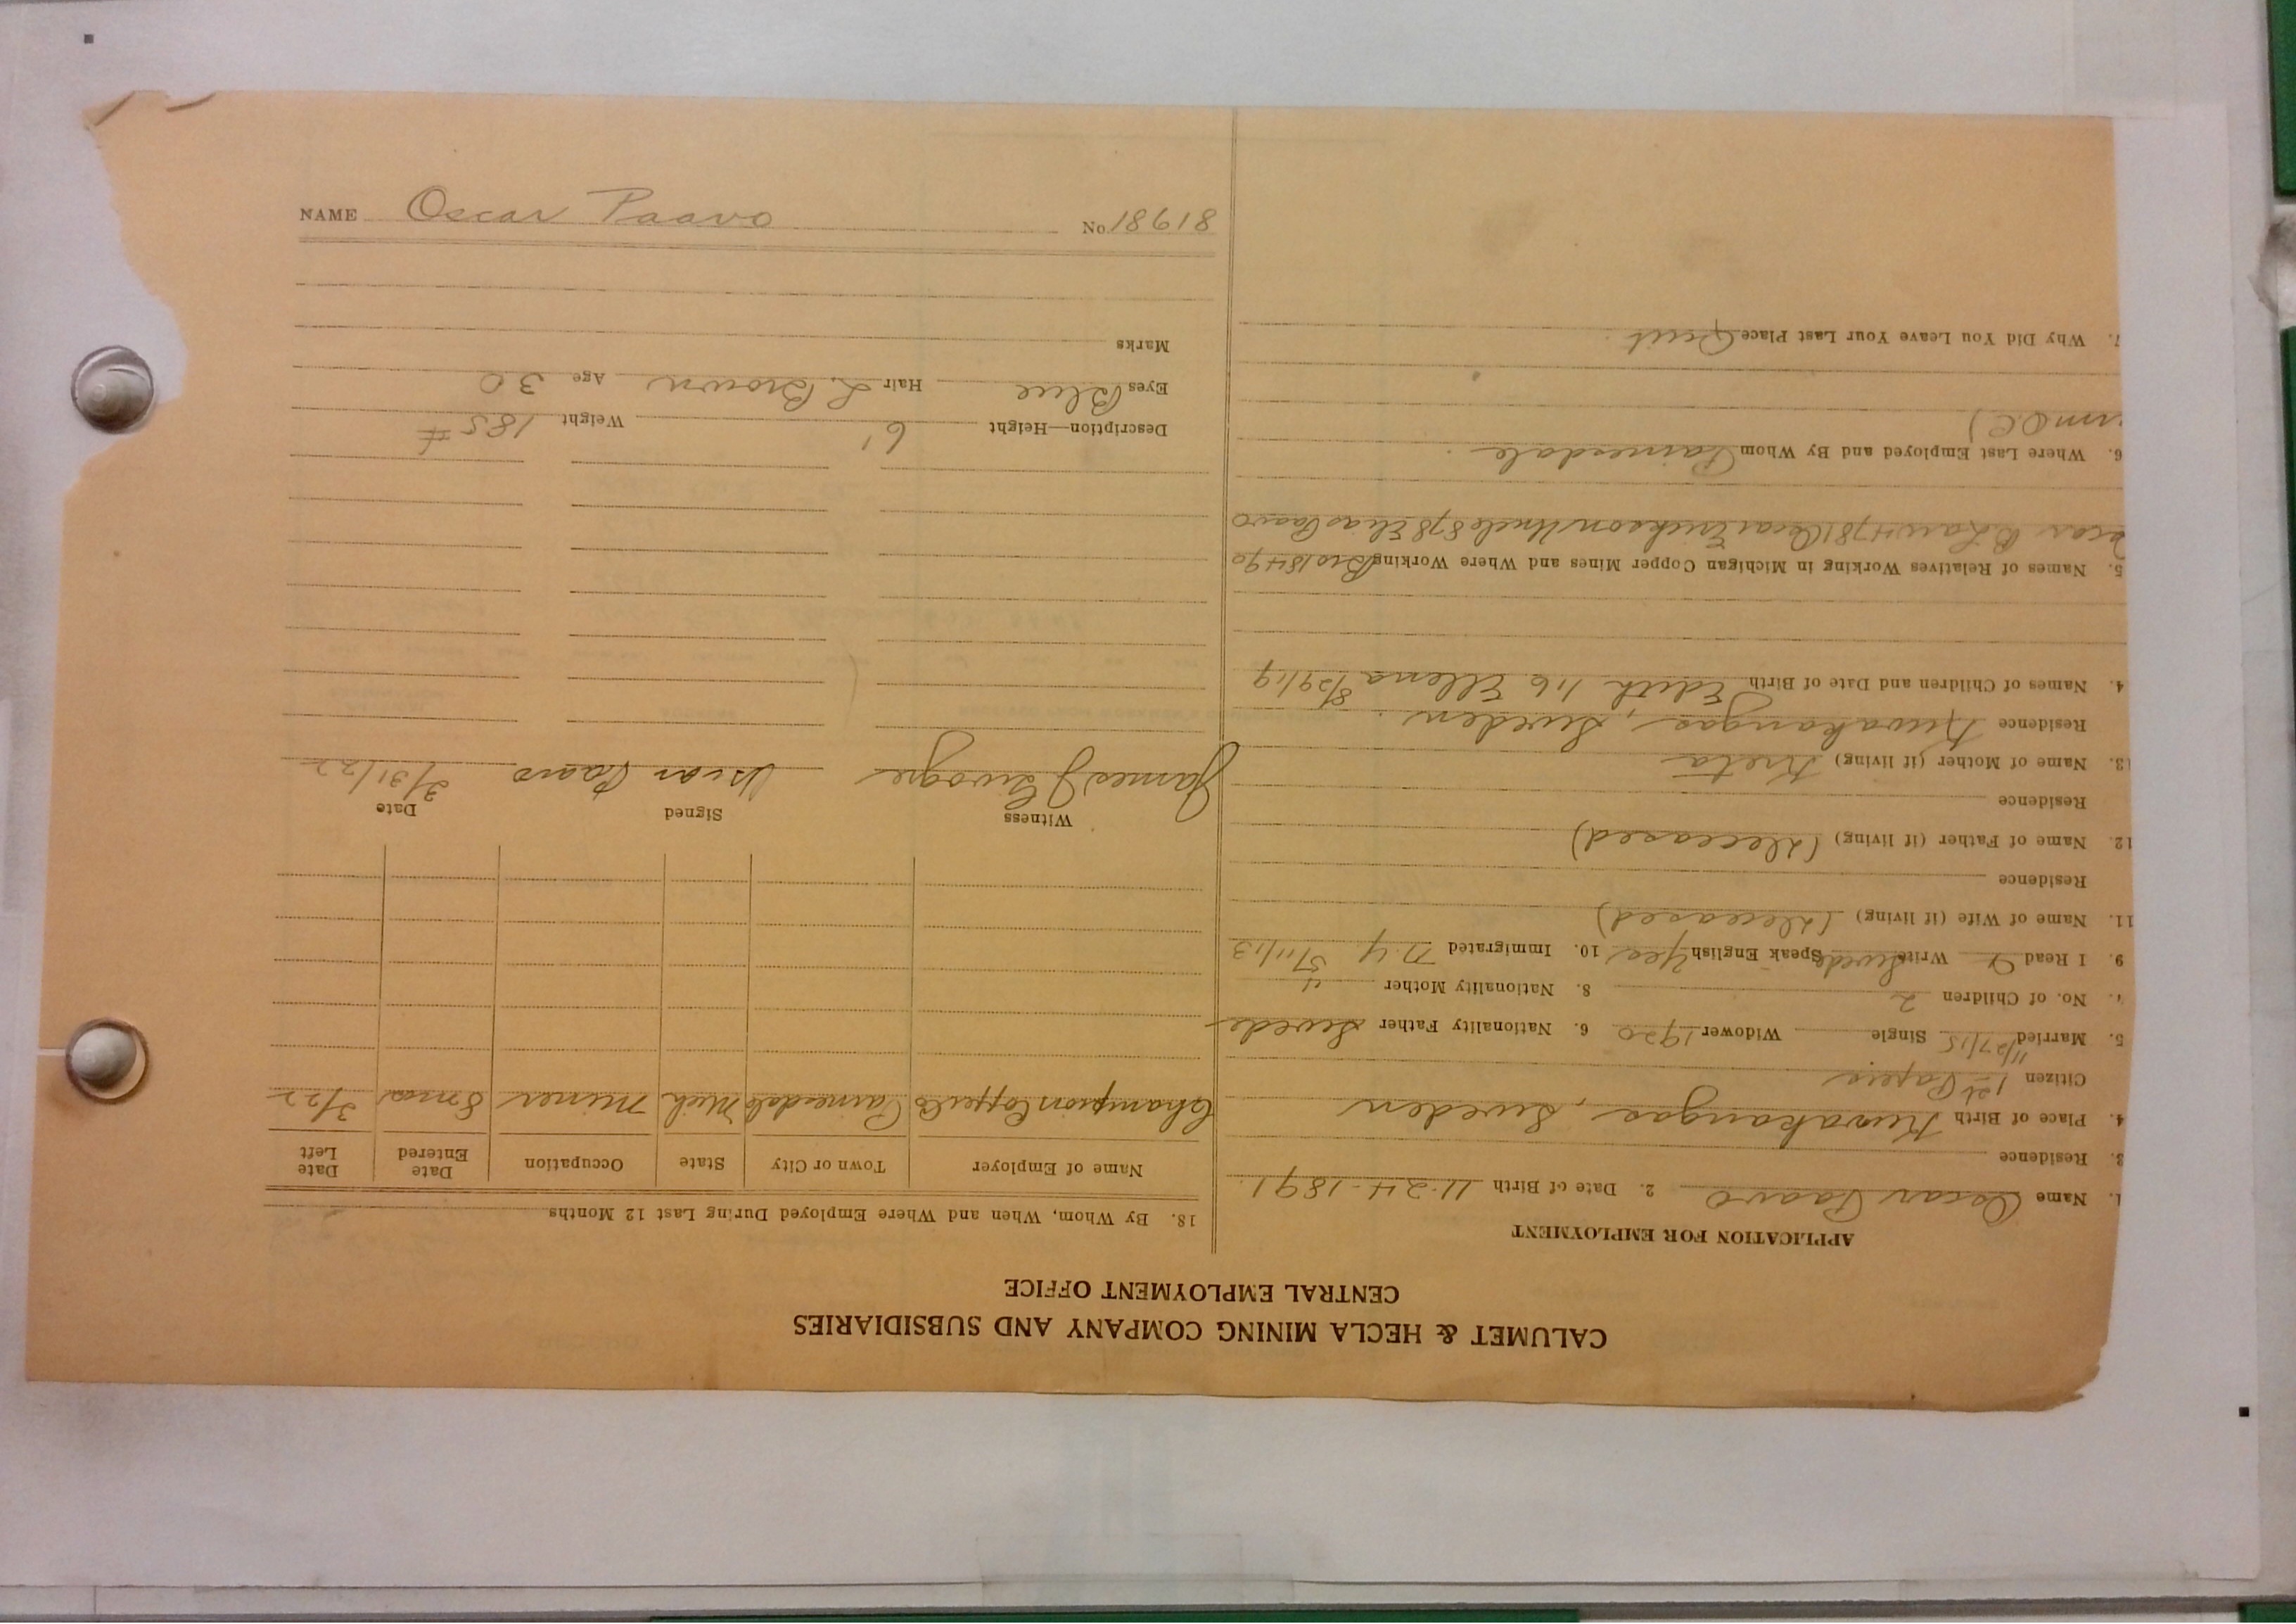 CALUMET & HECLA MINING COMPANY AND SUBSIDIARIES
CENTRAL EMPLOYMENT OFFICE
APPLICATION FOR EMPLOYMENT
1. Name Oscar Paavo 2. Date of Birth 11-24-1891
3. Residence
4. Place of Birth Kuvakangas, Sweden
Citizen 1st Papers
5. Married 11/27/15 Single Widower 1920 6. Nationality Father Swede
7. No. of Children 2 8. Nationality Mother "
9. I Read Write Swede Speak English Yes 10. Immigrated N.Y 5/11/13
11. Name of Wife (if living) (Deceased)
Residence
12. Name of Father (if living) (Deceased)
Residence
13. Name of Mother (if living) Kreta
Residence Kuvakangas, Sweden
4. Names of Children and Date of Birth Edith 1/6 Ellena 8/29/19
5. Names of Relatives Working in Michigan Copper Mines and Where Working Bro 18490
B Law 4781 Oscar Erickson Uncle 878 Elias Paavo
6. Where Last Employed and By Whom Painesdale
7. Why Did You Leave Your Last Place Quit
18. By Whom, When and Where Employed During Last 12 Months
Name of Employer Town or City State Occupation Date Entered Date Left
Champion Copper Co Painesdale Mich Miner 8 mos 3/22
Witness Signed Date
James J Oscar Paavo 3/31/22
Description—Height 6' Weight 185 #
Eyes Blue Hair L. Brown Age 30
Marks
NAME Oscar Paavo No. 18618